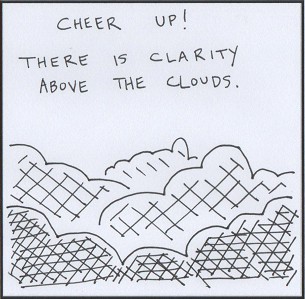 CHEER UP!
THERE IS CLARITY
ABOVE THE CLOUDS.